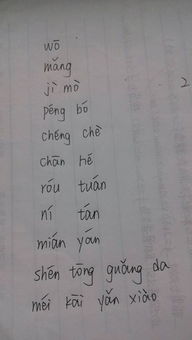 wō
mǎng
jì mò
péng bó
chéng chè
chān hé
róu tuán
ní tán
mián yán
shén tōng guǎng dà
méi kāi yǎn xiào
2